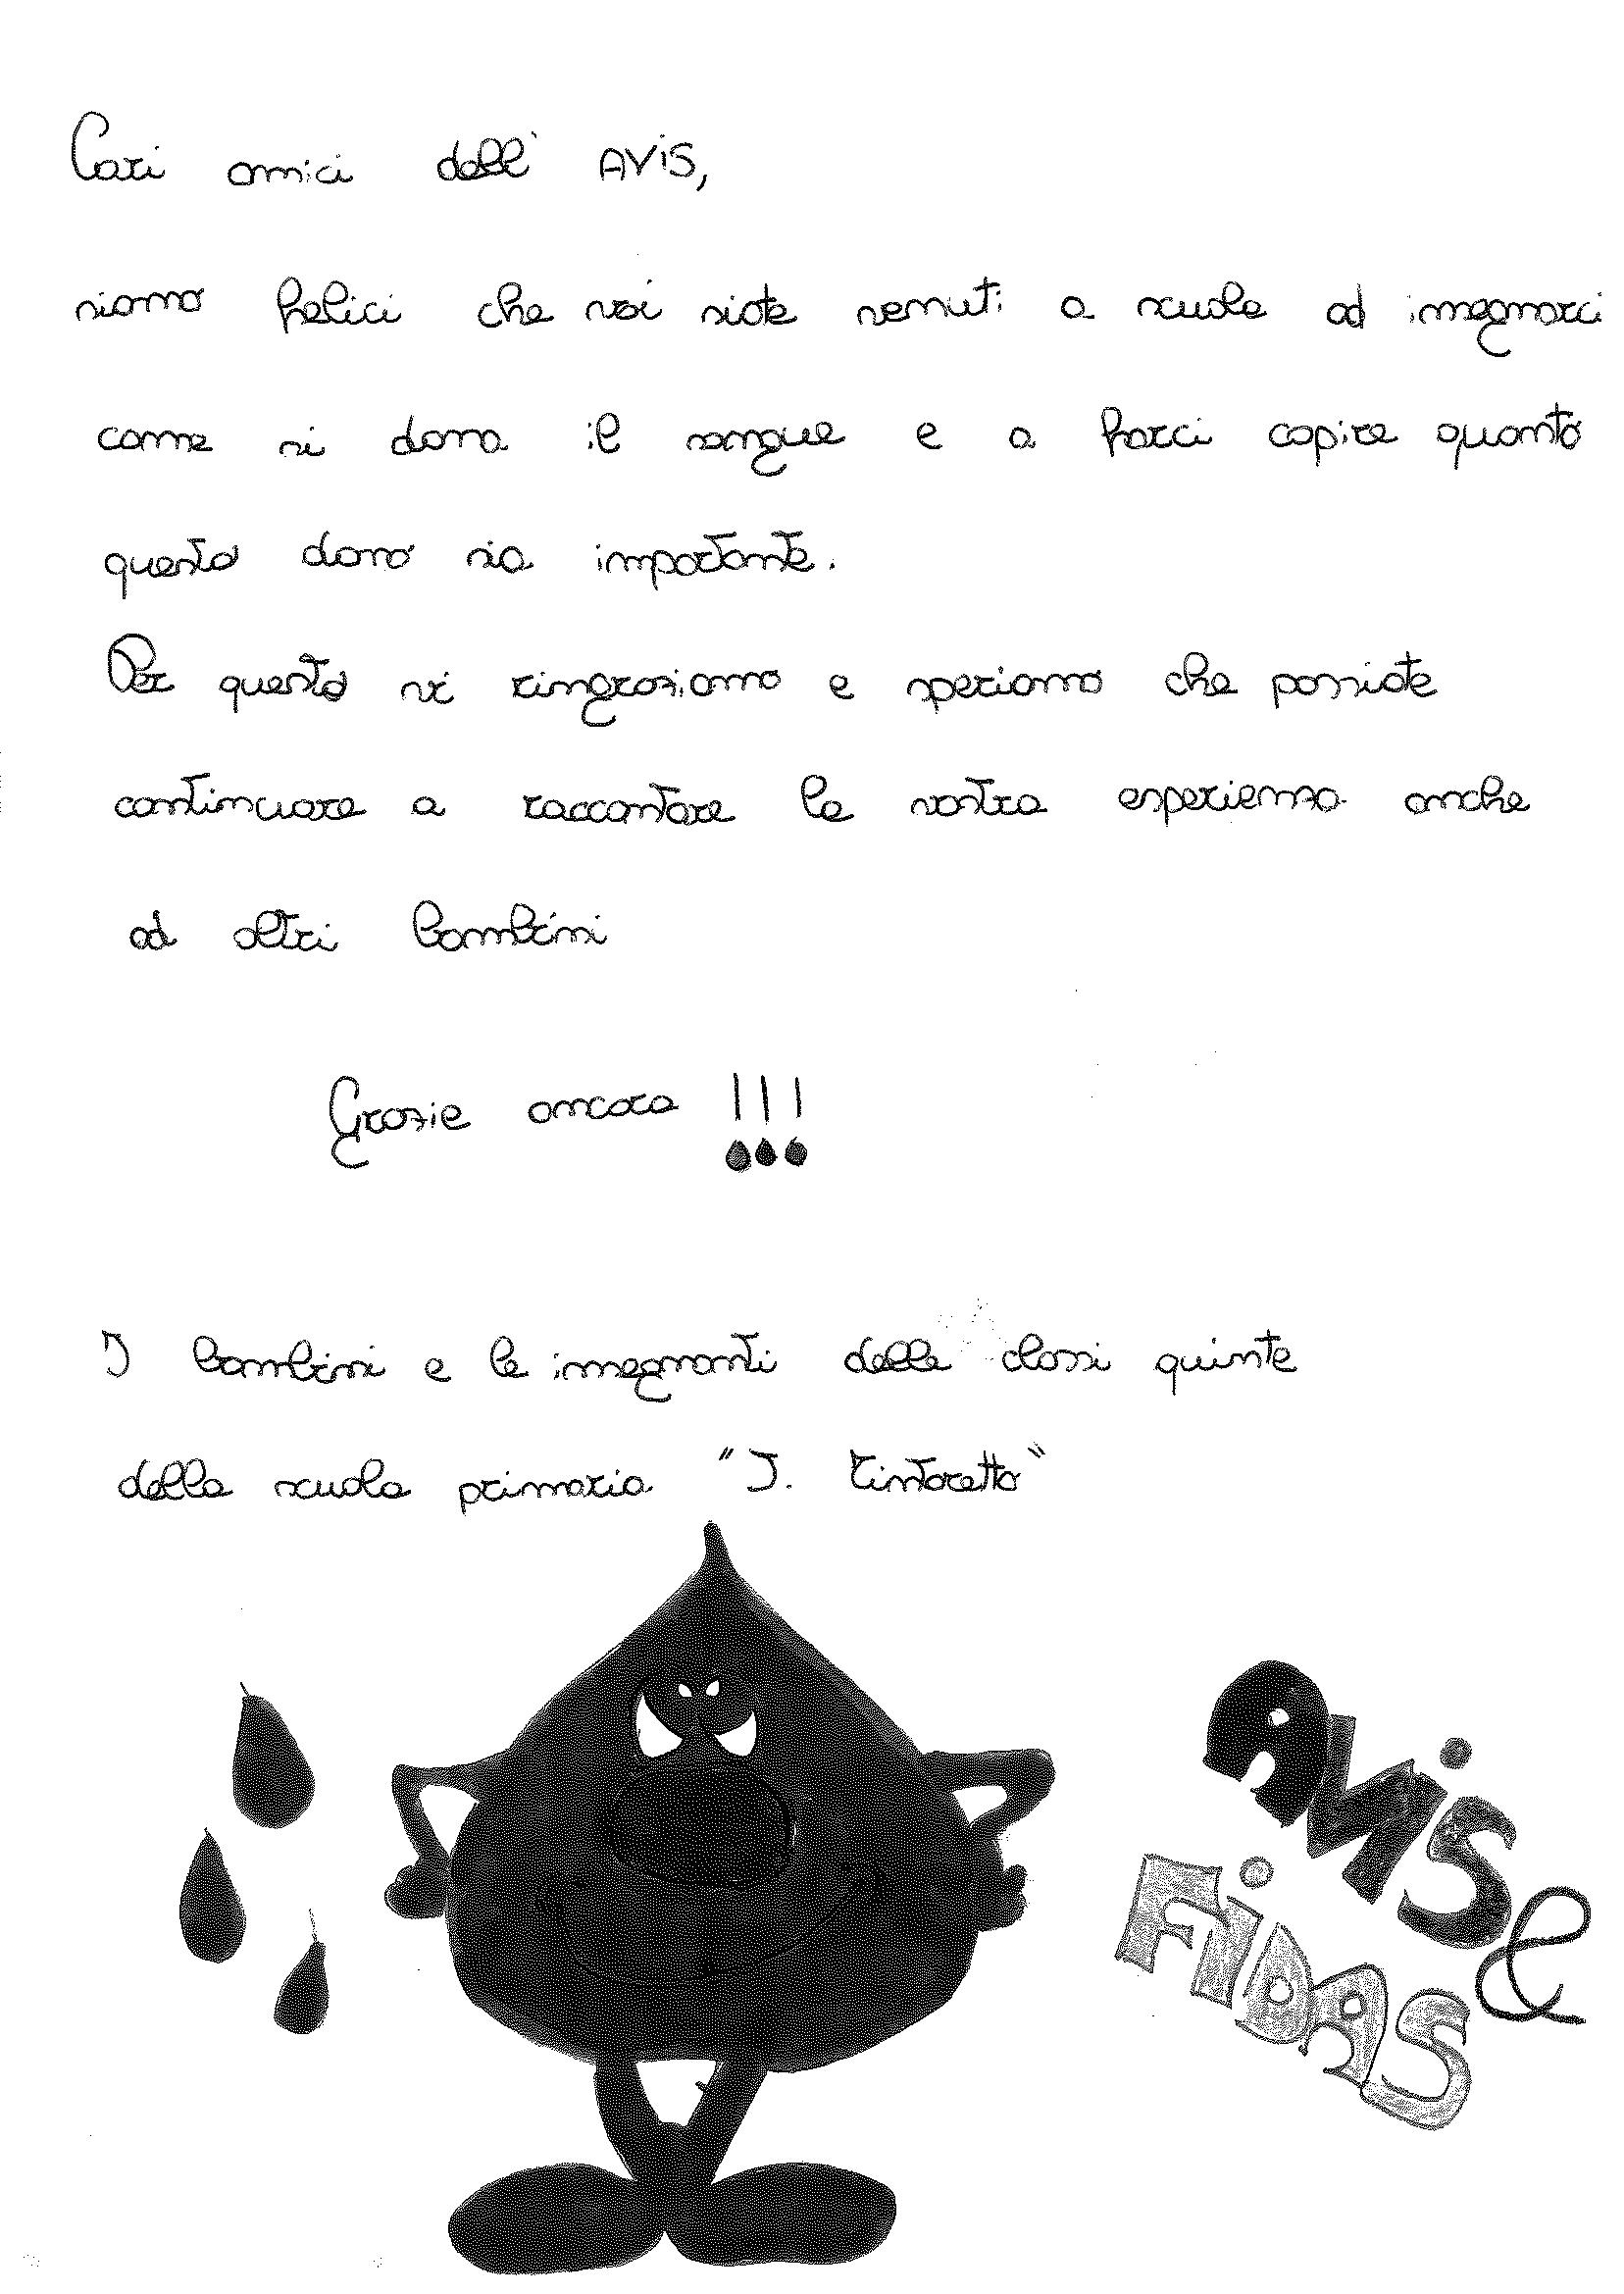 Cari amici dell' AViS,
siamo felici che voi siate venuti a scuola ad insegnarci
come si dona il sangue e a farci capire quanto
questo dono sia importante.
Per questo vi ringraziamo e speriamo che possiate
continuare a raccontare la vostra esperienza anche
ad altri bambini
Grazie ancora !!!
I bambini e le insegnanti delle classi quinte
della scuola primaria "J. Tintoretto"
AViS &
FiDAS